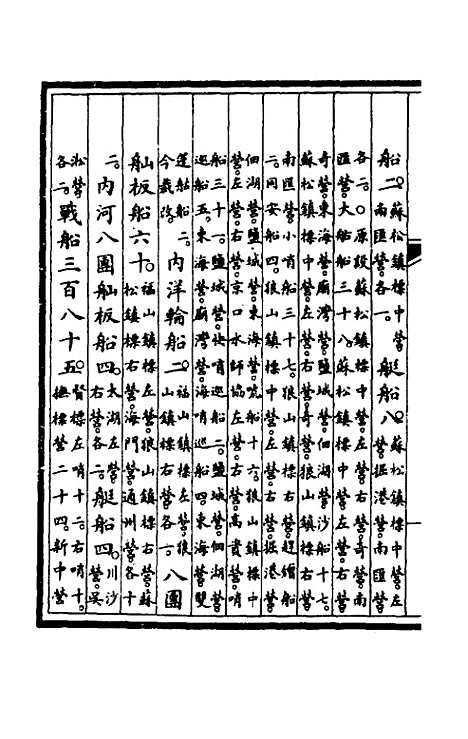 船二。蘇松鎮標中營南匯營各一。艇船八。蘇松鎮標中營左營掘港營南匯營
各二。原設蘇松鎮標中營左營右營奇營南匯營。大船船三十八。蘇松鎮標中營左營右營
奇營東海營廟灣營鹽城營佃湖營沙船十七。蘇松鎮標中營左營右營奇營狼山鎮標右營。
南匯營小哨船三十七。狼山鎮標右營。趕繒船二。同安船四。狼山鎮標中營右營掘港營
佃湖營鹽城營東海營唬船十六。狼山鎮標中營左營右營京口水師協左營右營高資營哨
船三十一。鹽城營快哨巡船二。鹽城營佃湖營巡船五。東海營廟灣營海哨巡船四。東海營雙
篷船二。今裁改。內洋輪船二。福山鎮標左營狼山鎮標右營各一。八團
舢板船六十。福山鎮標左營狼山鎮標右營蘇松鎮標右營海門營通州營各十
二。內河八團舢板船四。太湖左營右營各二。艇船四。川沙營吳
淞營各一。戰船三百八十五。督標左哨十二。右哨十。撫標營二十四新中營